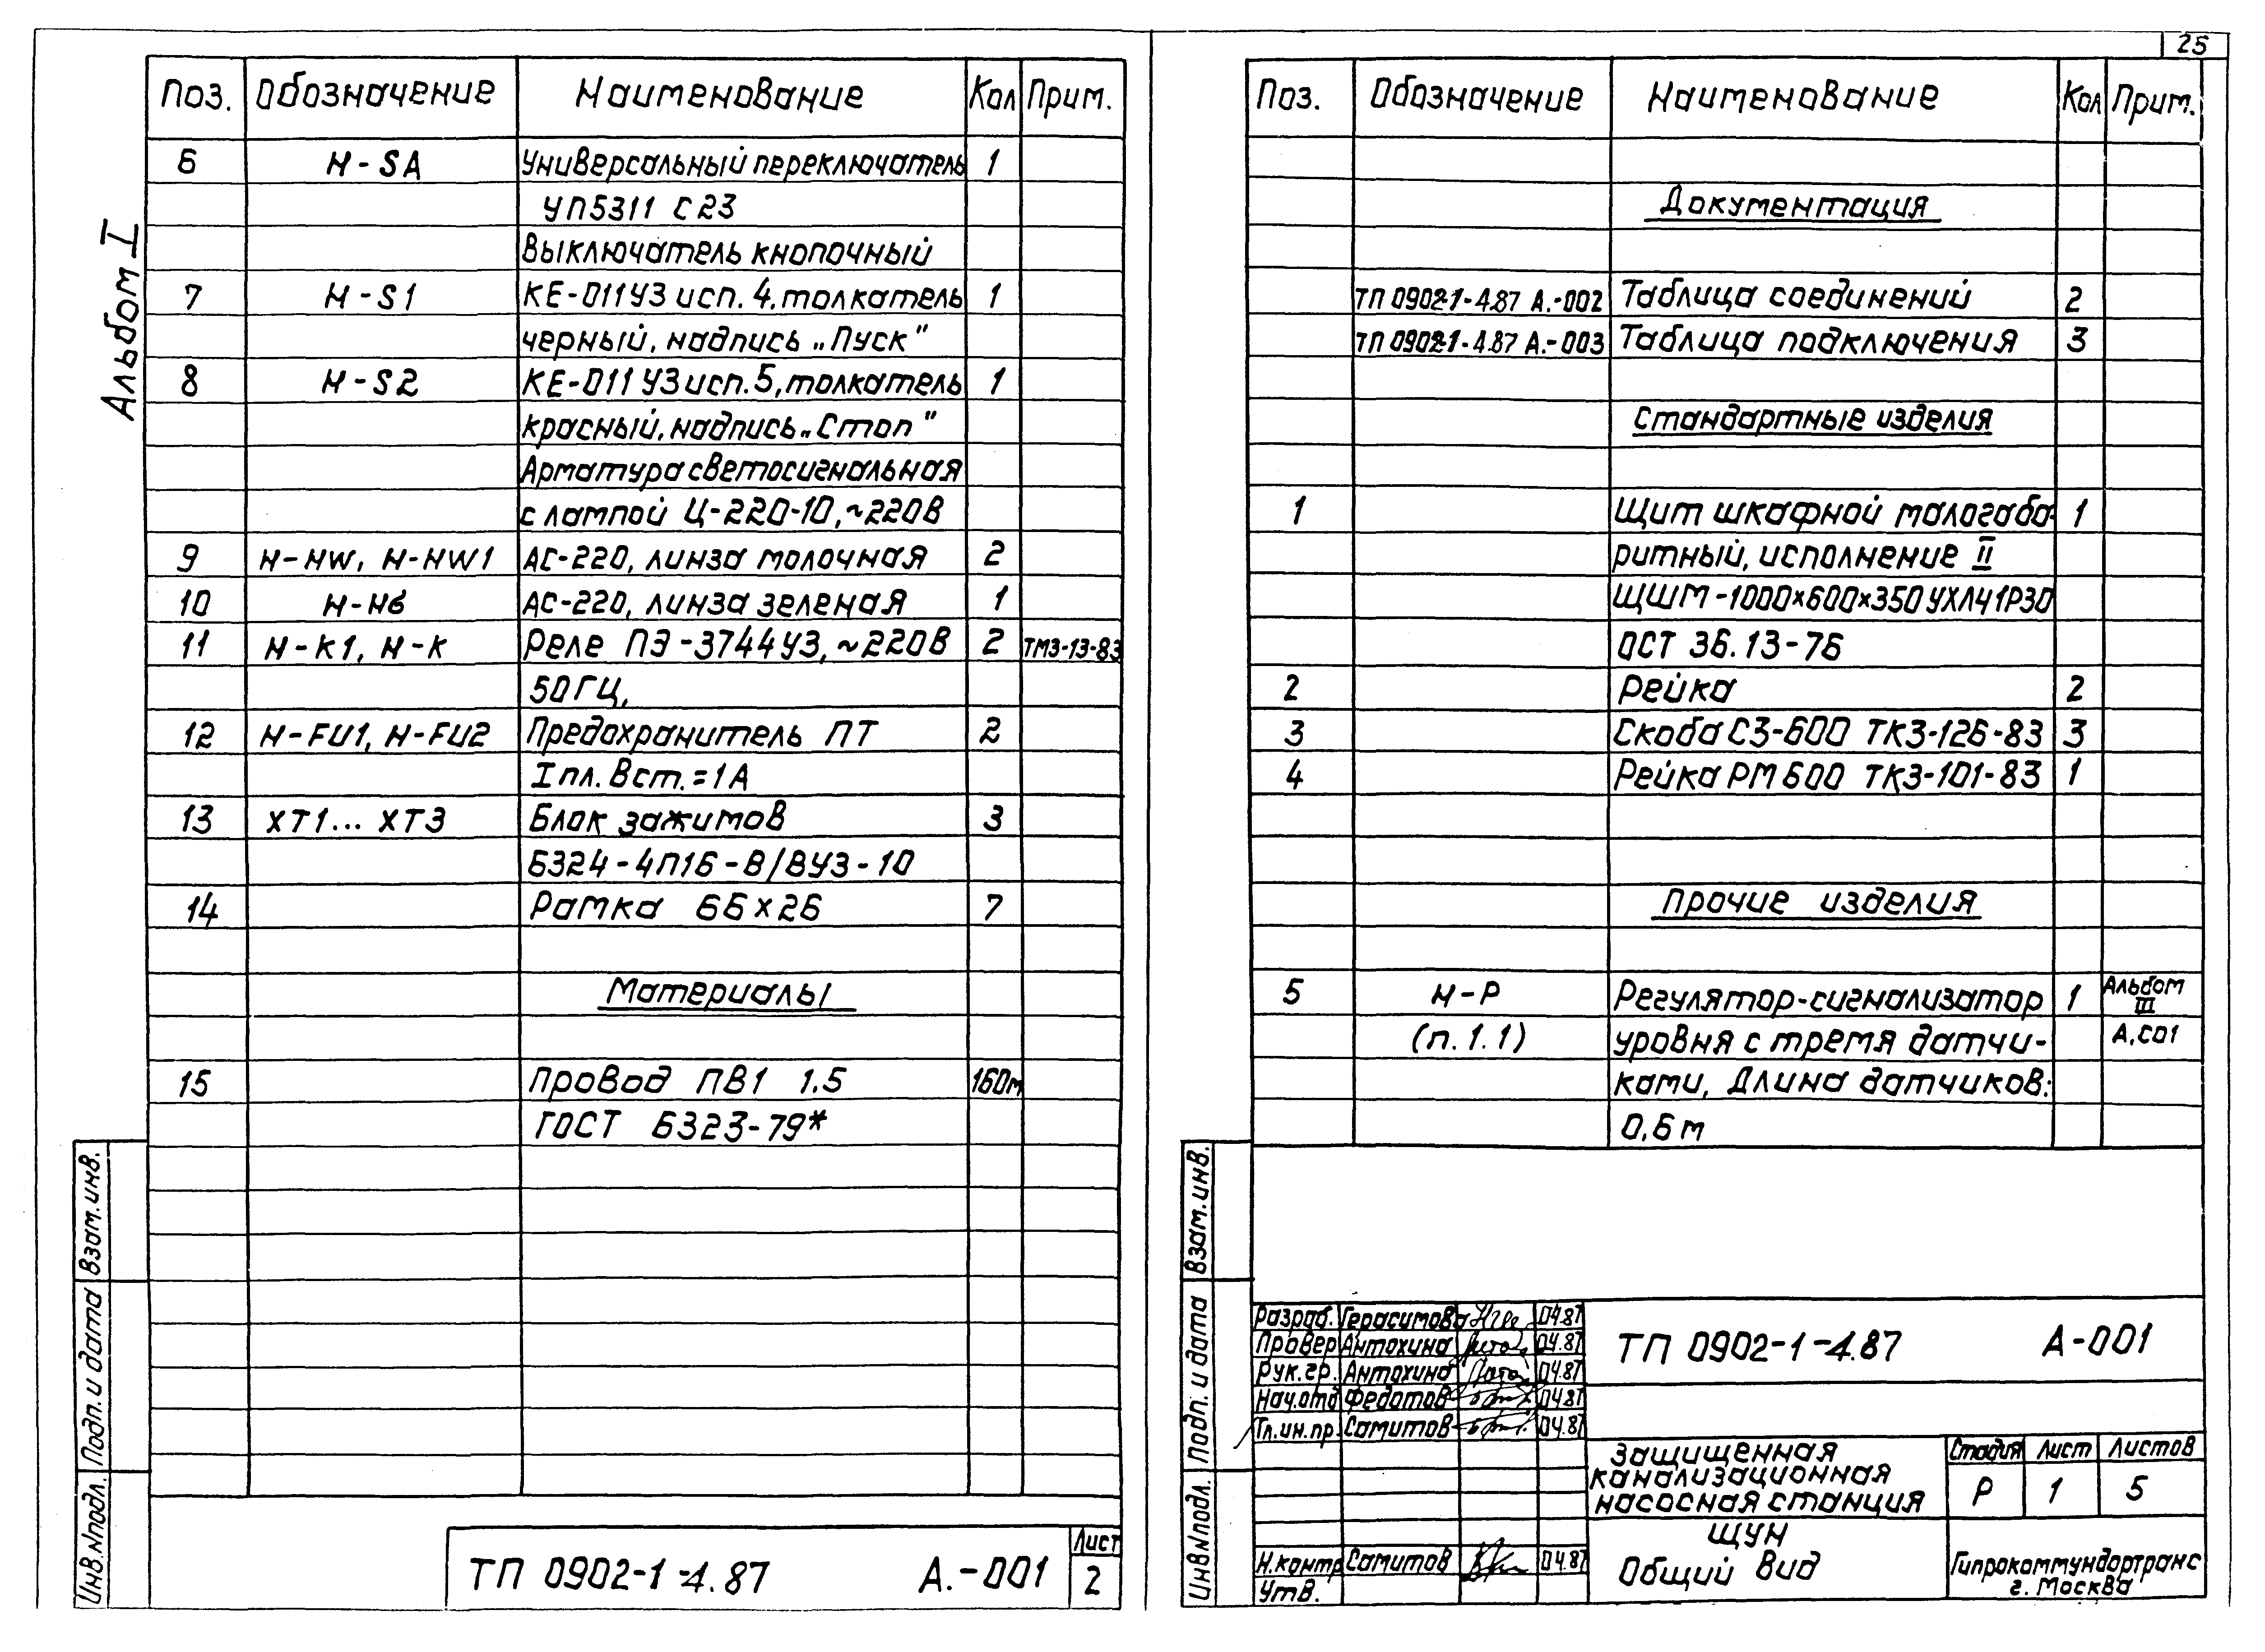 Альбом I
Поз. Обозначение Наименование Кол Прим.
6 Н-SA Универсальный переключатель 1
УП5311 С23
Выключатель кнопочный
7 Н-S1 КЕ-011У3 исп. 4, толкатель 1
черный, надпись „Пуск"
8 Н-S2 КЕ-011У3 исп. 5, толкатель 1
красный, надпись „Стоп"
Арматура светосигнальная
с лампой Ц-220-10, ~220В
9 Н-HW, Н-HW1 АС-220, линза молочная 2
10 Н-НG АС-220, линза зеленая 1
11 Н-К1, Н-К Реле ПЭ-3744У3, ~220В 2 ТМ3-13-83
50ГЦ,
12 Н-FU1, Н-FU2 Предохранитель ПТ 2
Iпл. Вст. = 1А
13 ХТ1... ХТ3 Блок зажимов 3
Б324-4П16-В/ВУ3-10
14 Рамка 66х26 7
Материалы
15 Провод ПВ1 1,5 160м
ГОСТ 6323-79*
Взам. инв.
Подп. и дата
Инв.№подл.
ТП 0902-1-4.87 А.-001
Лист
2
25
Поз. Обозначение Наименование Кол Прим.
Документация
ТП 0902-1-4.87 А.-002 Таблица соединений 2
ТП 0902-1-4.87 А.-003 Таблица подключения 3
Стандартные изделия
1 Щит шкафной малогаба- 1
ритный, исполнение II
ЩШМ-1000х600х350УХЛ41Р30
ОСТ 36.13-76
2 Рейка 2
3 Скоба С3-600 ТК3-126-83 3
4 Рейка РМ600 ТК3-101-83 1
Прочие изделия
5 Н-Р Регулятор-сигнализатор 1 Альбом III
(п. 1. 1) уровня с тремя датчи- А,С01
ками, Длина датчиков:
0,6 м
Взам. инв.
Подп. и дата
Инв№подл.
Разраб. Герасимова 04.87
Провер Антохина 04.87
Рук.гр. Антохина 04.87
Нач.отд Федотов 04.87
Гл.ин.пр. Самитов 04.87
Н.контр Самитов 04.87
Утв.
ТП 0902-1-4.87 А-001
Защищенная
канализационная
насосная станция
Стадия Лист Листов
Р 1 5
ЩУН
Общий вид
Гипрокоммундортранс
г. Москва